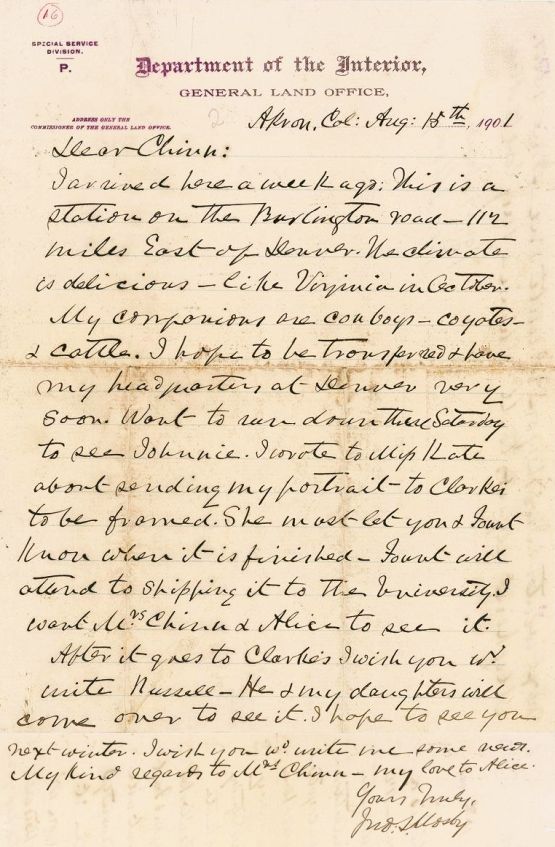 16
SPECIAL SERVICE
DIVISION.
P.
Department of the Interior,
GENERAL LAND OFFICE,
ADDRESS ONLY THE
COMMISSIONER OF THE GENERAL LAND OFFICE.
Akron, Col: Aug: 15th, 1901
Dear Chinn:
I arrived here a week ago: This is a
station on the Burlington road – 112
miles East of Denver. The climate
is delicious – like Virginia in October.
My companions are cowboys – coyotes –
& cattle. I hope to be transferred & have
my headquarters at Denver very
soon. Want to run down there Saturday
to see Johnnie. I wrote to Miss Kate
about sending my portrait to Clarke's
to be framed. She must let you & Fount
know when it is finished – Fount will
attend to shipping it to the University. I
want Mrs Chinn & Alice to see it.
After it goes to Clarke's I wish you wd.
write Russell – He & my daughters will
come over to see it. I hope to see you
next winter. I wish you wd. write me some news.
My kind regards to Mrs Chinn – my love to Alice.
Yours Truly,
Jno. S. Mosby